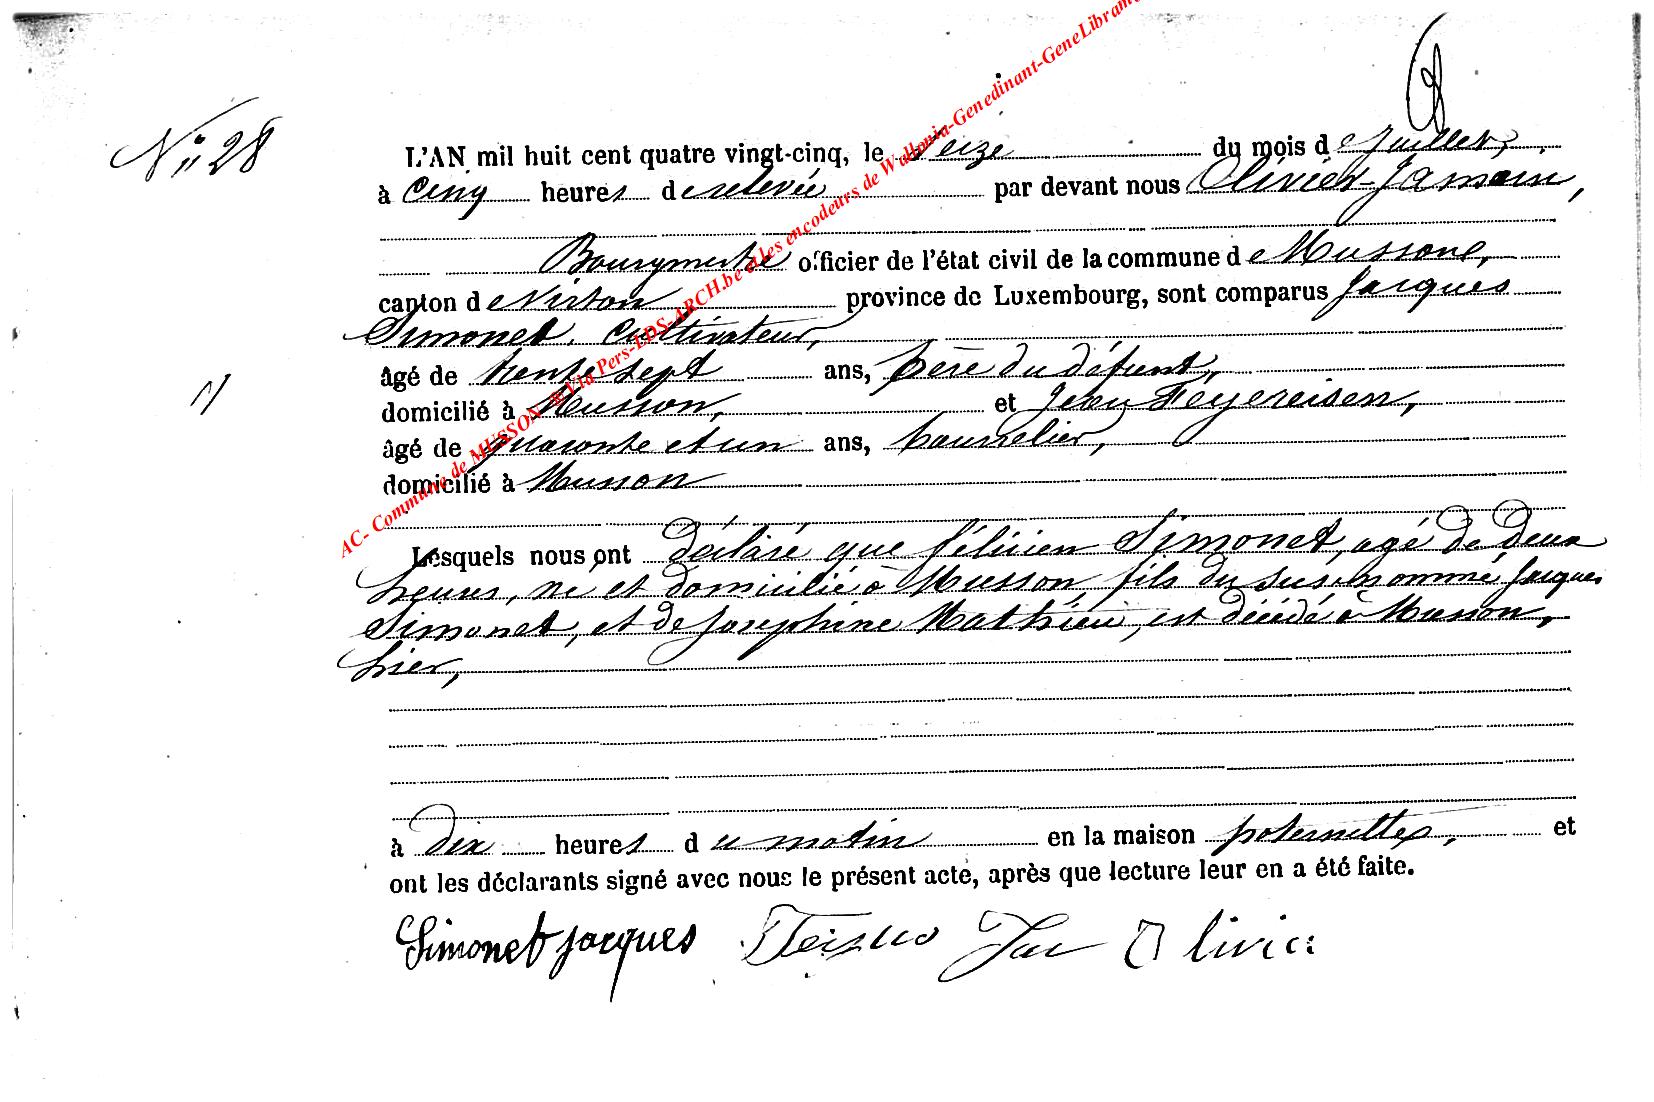 N° 28
L'AN mil huit cent quatre vingt-cinq, le seize du mois de Juillet,
à cinq heures de relevée par devant nous Olivier Jamain,
Bourgmestre officier de l'état civil de la commune de Mussone,
canton de Virton province de Luxembourg, sont comparus Jacques
Simonet, Cultivateur,
âgé de trente sept ans, père du défunt,
domicilié à Musson, et Jean Feyereisen,
âgé de quarante et un ans, bourrelier,
domicilié à Musson
Lesquels nous ont déclaré que Félicien Simonet, agé de deux
heures, né et domicilié à Musson, fils du susnommé Jacques
Simonet, et de Joséphine Mathieu, est décédé à Musson,
hier,
à dix heures du matin en la maison paternelles, et
ont les déclarants signé avec nous le présent acte, après que lecture leur en a été faite.
Simonet Jacques
AC- Commune de MUSSON Pers-LDS-ARCH.be et les encodeurs de Wallonia-Genedinant-GeneLibramont